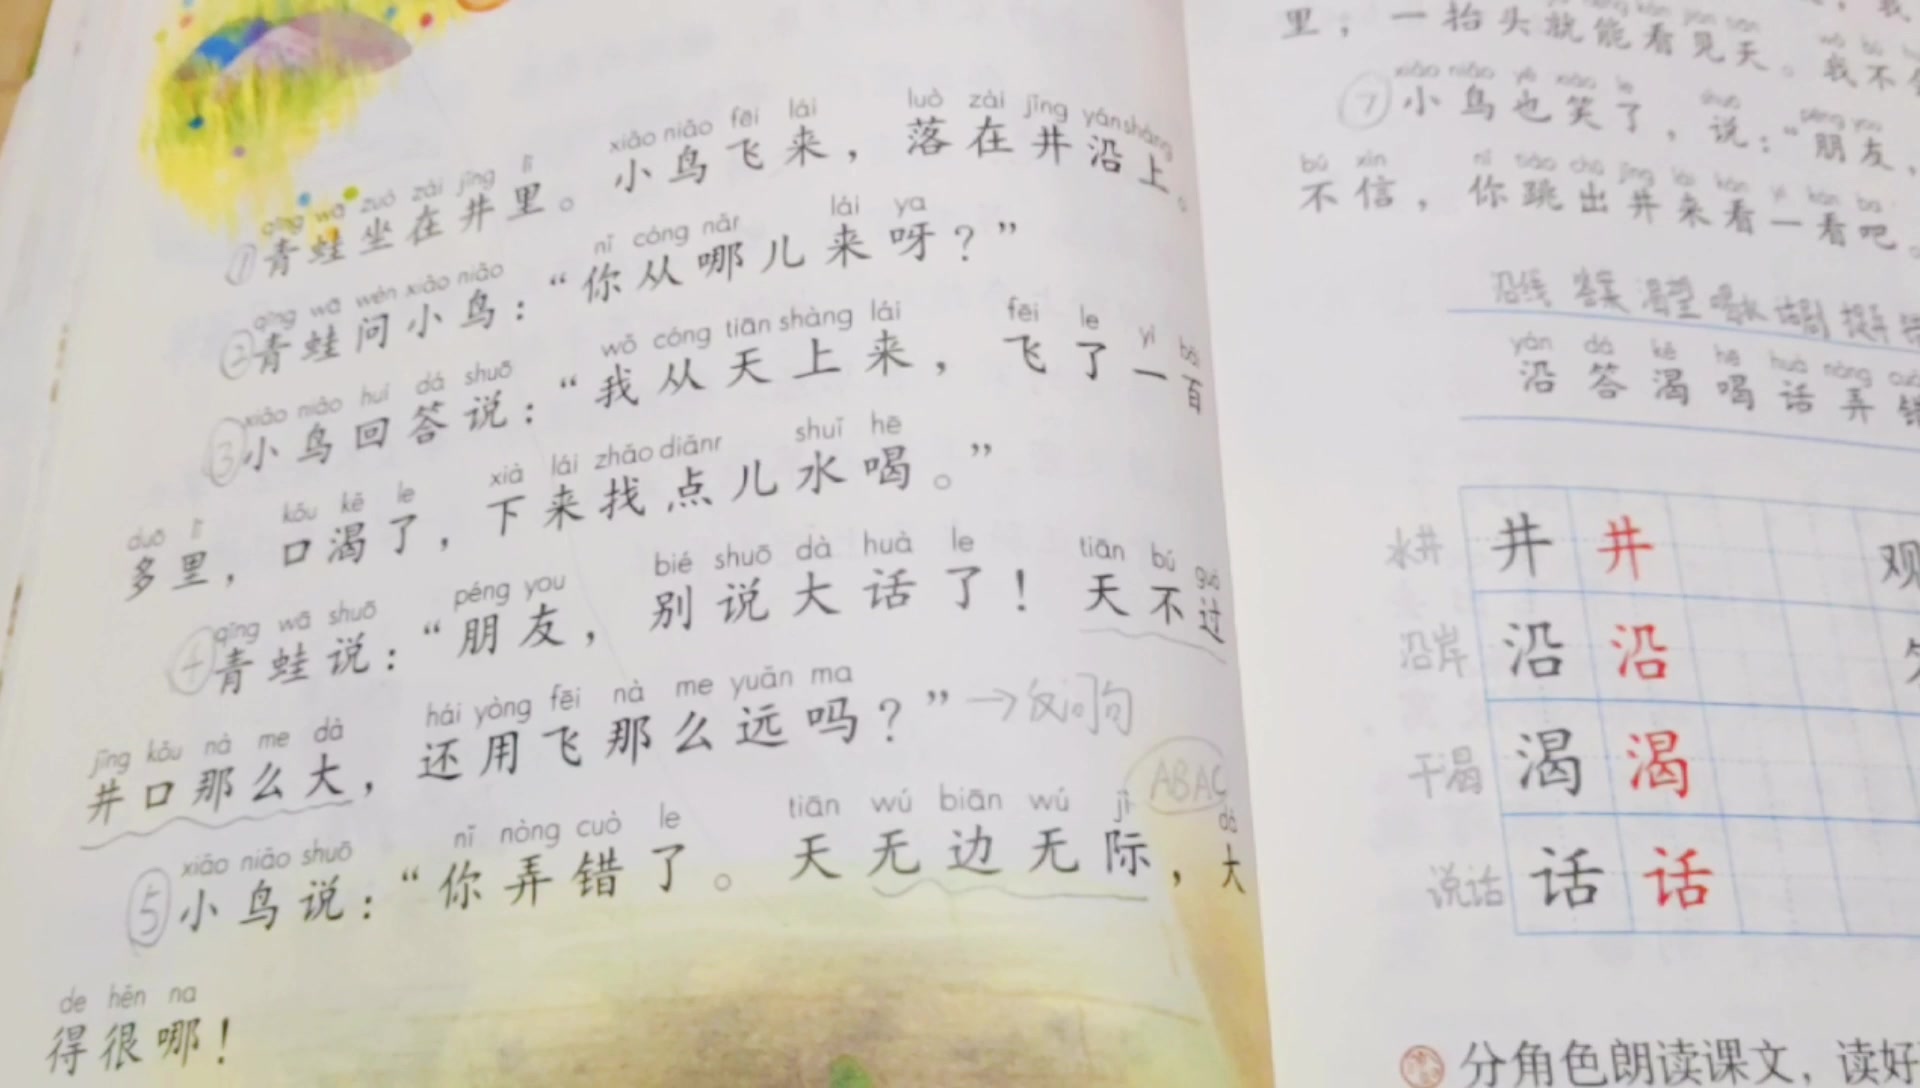 qīng wā zuò zài jǐng lǐ xiǎo niǎo fēi lái luò zài jǐng yán shàng
①青蛙坐在井里。小鸟飞来，落在井沿上。
qīng wā wèn xiǎo niǎo nǐ cóng nǎr lái ya
②青蛙问小鸟：“你从哪儿来呀？”
xiǎo niǎo huí dá shuō wǒ cóng tiān shàng lái fēi le yì bǎi
③小鸟回答说：“我从天上来，飞了一百
duō lǐ kǒu kě le xià lái zhǎo diǎnr shuǐ hē
多里，口渴了，下来找点儿水喝。”
qīng wā shuō péng you bié shuō dà huà le tiān bú guò
④青蛙说：“朋友，别说大话了！天不过
jǐng kǒu nà me dà hái yòng fēi nà me yuǎn ma
井口那么大，还用飞那么远吗？”→反问句
ABAC
xiǎo niǎo shuō nǐ nòng cuò le tiān wú biān wú jì dà
⑤小鸟说：“你弄错了。天无边无际，大
de hěn na
得很哪！
里，一抬头就能看见天。我不
xiǎo niǎo yě xiào le shuō péng you
⑦小鸟也笑了，说：“朋友，
bú xìn nǐ tiào chū jǐng lái kàn yi kàn ba
不信，你跳出井来看一看吧。
沿线 答案 渴望 喝水 话剧
yán dá kě hē huà nòng cuò
沿 答 渴 喝 话 弄 错
水井 井 井 观
沿岸 沿 沿
干渴 渴 渴
说话 话 话
分角色朗读课文，读好